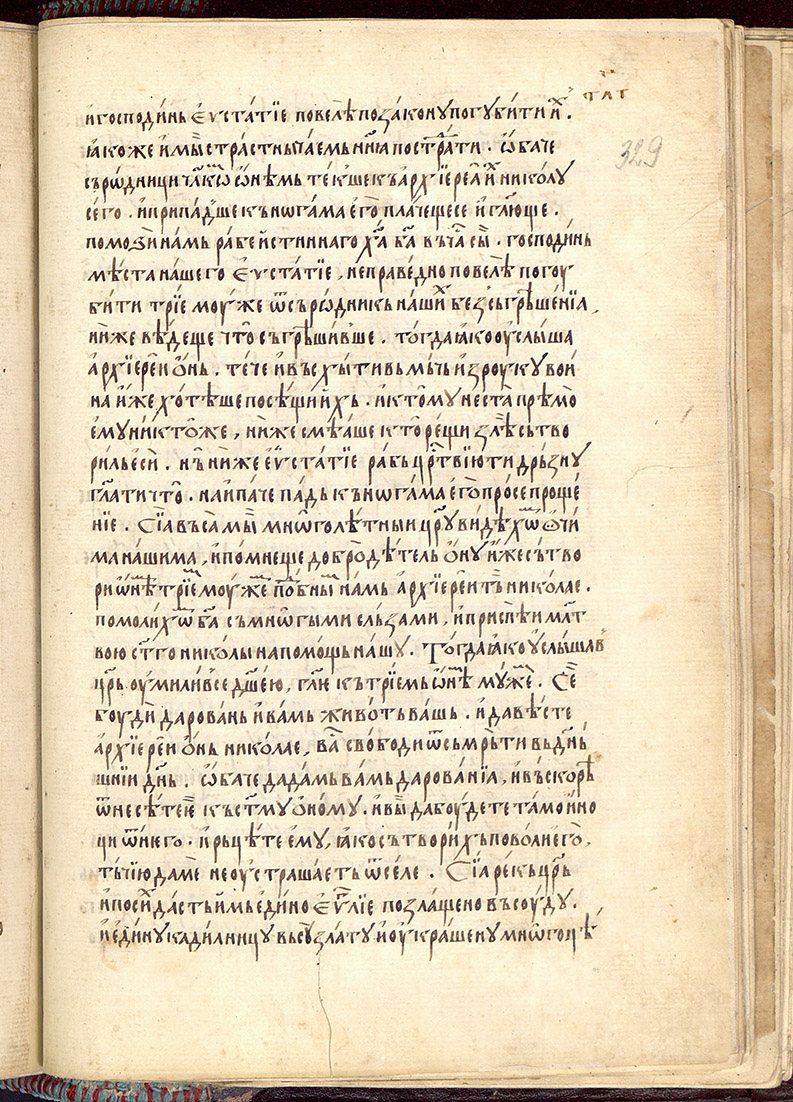 тлг
329
и҆господи́нь є҆ѵстáтїе повелѣ̀ позáкону погуби́ти и҆х .
ꙗ҆коже и҆мы̀ стрáстны чáемь нн҃ꙗ пострáти . ѡ҆бáче
сърѡ́дници чл҃кѡ ѡ҆нѣмь те́кше къ а҆рхїере́ꙋ и҆х нико́лу
се́го . и҆припáдше къ ногáма е҆го̀ плáчещесе и҆ гл҃юще .
помоꙁѝ нáмь рáбе и҆́стиннаго хⷭ҇а бг҃а въчⷭ҇а сы̀ . господи́нь
мѣ́ста нáшего є҆ѵстáтїе , непрáведно повелѣ̀ погоу
би́ти трїе моу́же ѿсърѡ́дникь нáших беꙁ съгрѣше́нїа ,
ни́же вѣ́деще что̀ съгрѣши́вше . то́гда ꙗ҆ко оу҆слы́ша
а҆рхїере́и ѻ҆́нь . те́че и҆въсхы́тивь мь́чь и҆ꙁроу́ку вои́
на и҆́же хотѣ́ше посѣщѝ и҆́хь . и҆кто́му не ста̀ прѣмо̀
е҆мꙋ̀ ни́кто̀же , ни́же смѣ́аше кто̀ рещѝ ꙁлѣ̀ сътво
ри́ль е҆сѝ . нь̀ ни́же є҆ѵстáтїе рáбь црⷭ҇твїю ти дрь́ꙁну
гл҃ати что̀ . наи́паче пáдь къ ногáма е҆го̀ про́се проще́
нїе . Сїа̀ въса̀ мы̀ мнѡ́голѣтныи цр҃у ви́дѣхѡⷨ ѻ҆чи́
ма нáшима , и҆помне́ще добро̀дѣтель ѻ҆́ну и҆́же сътво
рѝ ѡ҆нѣⷨ трїеⷨ моу́жеⷨ по́бныⷨ нáмь а҆рхїере́и ть̀ никóлае .
помоли́хѡⷨ бг҃а съмнѡ́гыми сль́ꙁами , и҆приспѣ̀ и҆млⷭ҇т
вою ст҃го нико́лы на по́мощь нáшу . То́гда ꙗ҆ко у҆слы́шав
цр҃ь оу҆ми́ли въсе дш҃е́ю , гл҃ѥ къ трїе́мь ѡ҆нѣⷨ му́жеⷨ . Сѐ
боу́ди даровáнь и҆вáмь живо́ть вáшь . и҆да вѣ́сте
а҆рхїере́и ѻ҆́нь никóлае , вⷭ҇а свободѝ ѿсьмрь́ти вьдн҃ь
шнїи дн҃ь . ѡ҆бáче дадáмь вáмь даровáнїа , и҆въскорѣ̀
ѿнесѣ́те ѥ къст҃му ѻ҆́ному . и҆вы̀ да боу́дете тáмо и҆́но
ци ѿне́го . и҆рьцѣ́те е҆му̀ , ꙗ҆ко сътвори́хь по во́ли е҆го̀ ,
ты́ чїю да мѐ не оу҆страшáеть ѿсе́ле . Сїа̀ ре́кь цр҃ь
и҆по сиⷯ дáсть и҆̀мь е҆ди́но є҆ѵⷢ҇лїе поꙁлащено въсоу́ду .
и҆ е҆ди́ну кади́лницу въсу̀ ꙁлáту и҆оу҆крáшену мнѡ́гоцѣ